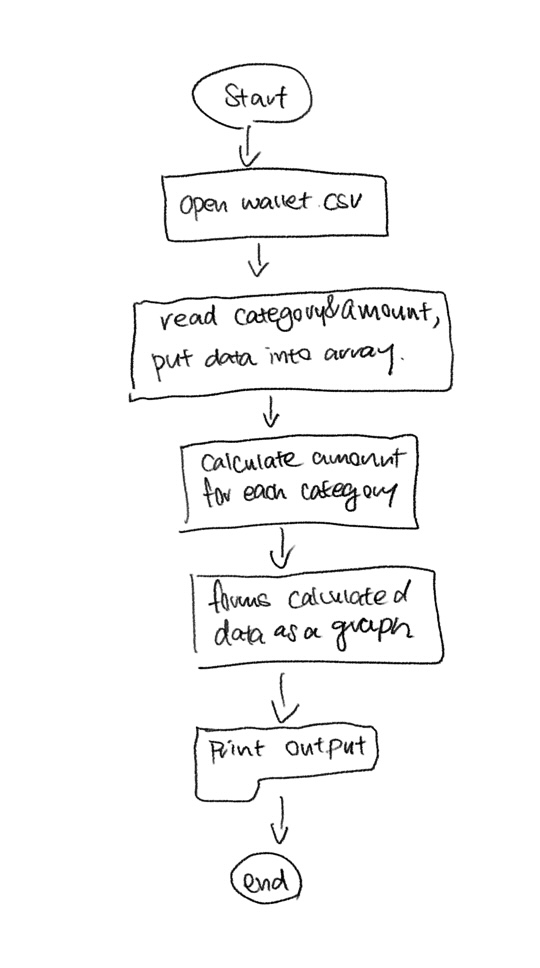 Start
open wallet.csv
read category&amount,
put data into array.
calculate amount
for each category
forms calculated
data as a graph
Print output
end